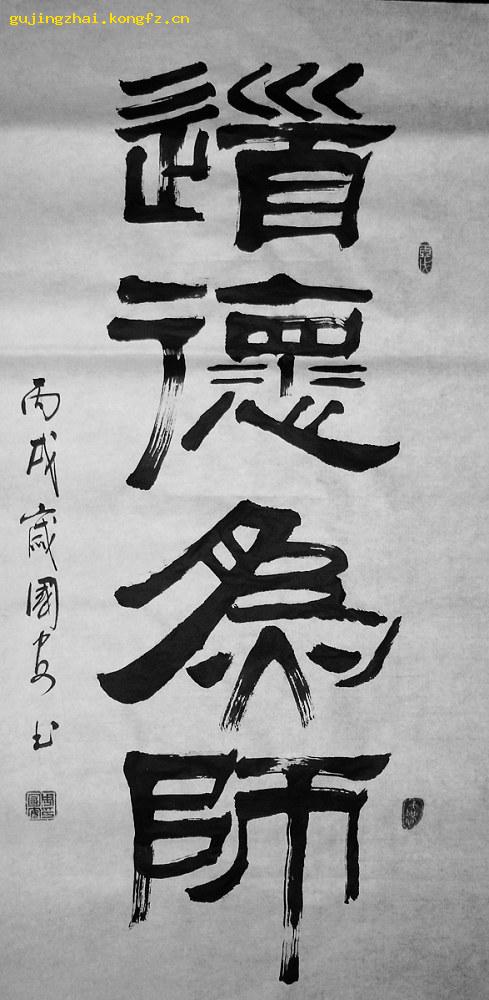 gujingzhai.kongfz.cn
道德為師
丙戌歲國安书